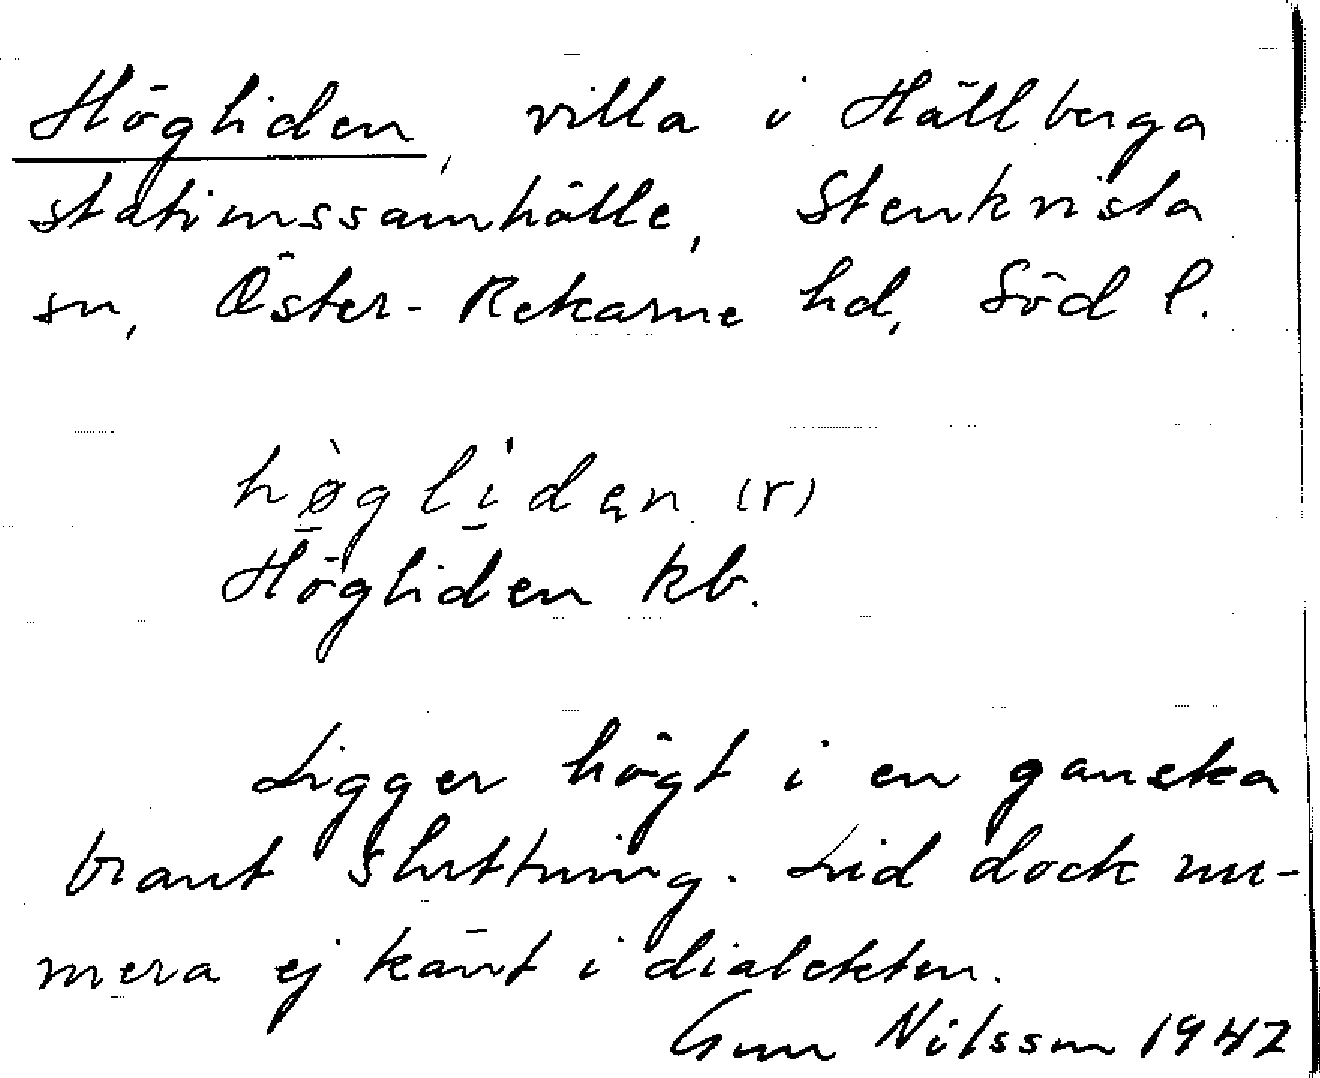 Högliden, villa i Hällberga
stationssamhälle, Stenkvista
sn, Öster-Rekarne hd, Söd l.
hø̀glíden (r)
Högliden kb.
Ligger högt i en ganska
brant sluttning. Lid dock nu-
mera ej känt i dialekten.
Gun Nilsson 1947